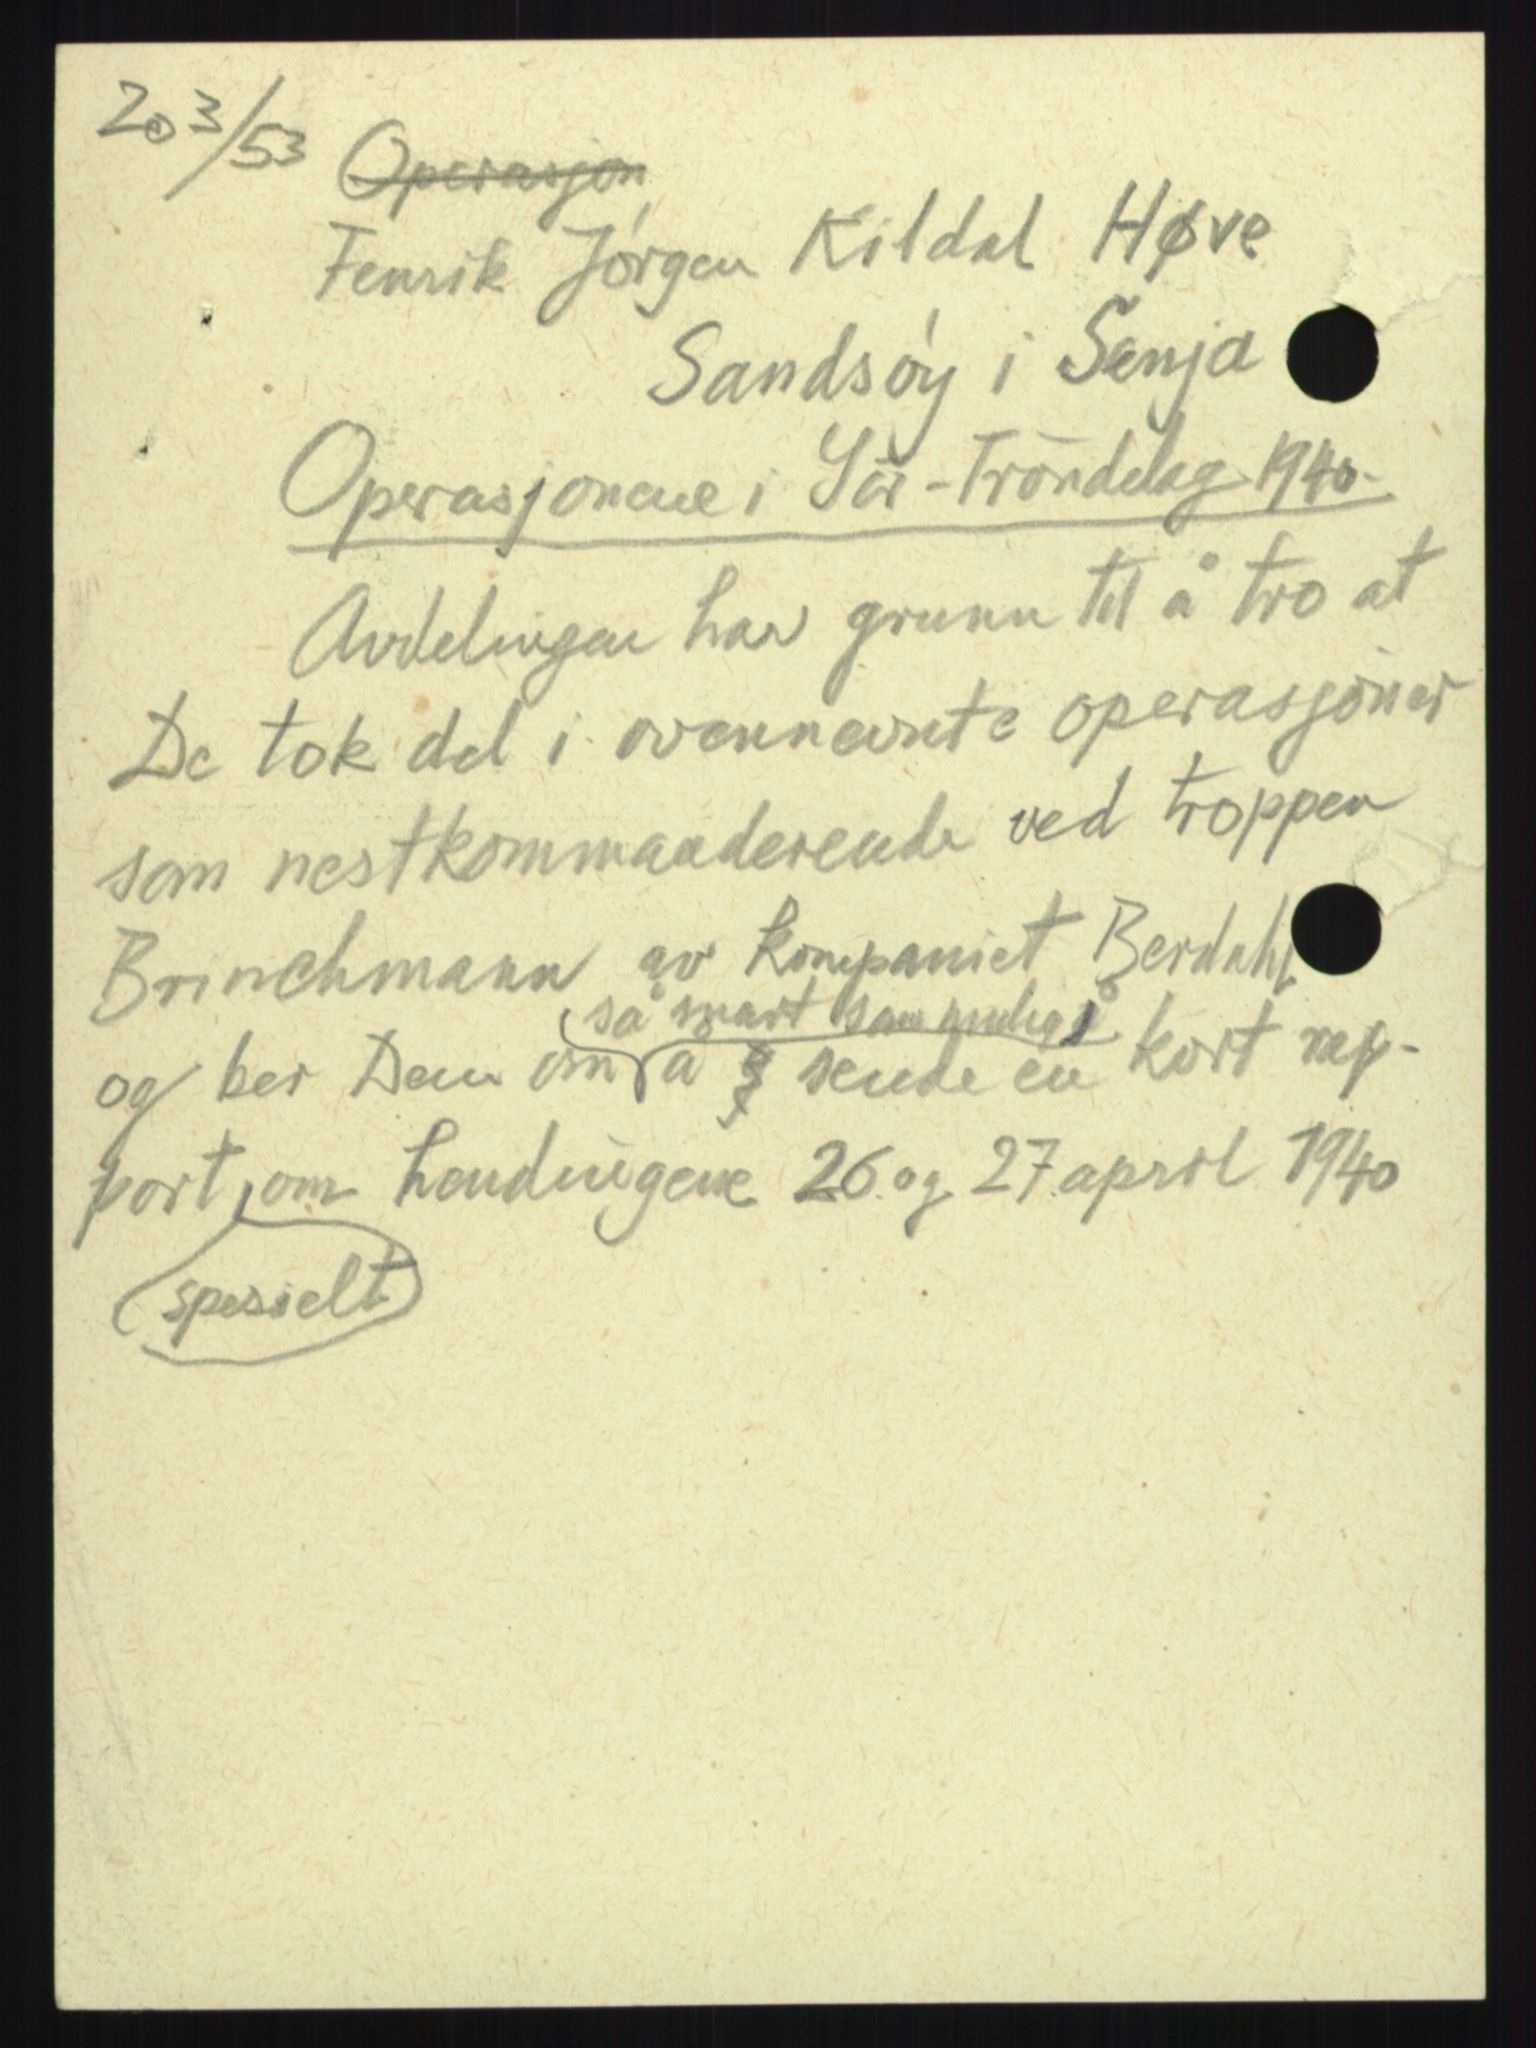 20 3/53
Operasjon
Fenrik Jörgen Kildal Høve
Sandsöy i Senja
Operasjonene i Sör-Tröndelag 1940.
Avdelingen har grunn til å tro at
De tok del i ovennevnte operasjoner
som nestkommanderende ved troppen
Brinchmann av kompaniet Berdahl
så snart som mulig
og ber Dem om å sende en kort rap-
port, om hendingene 26. og 27. april 1940
spesielt